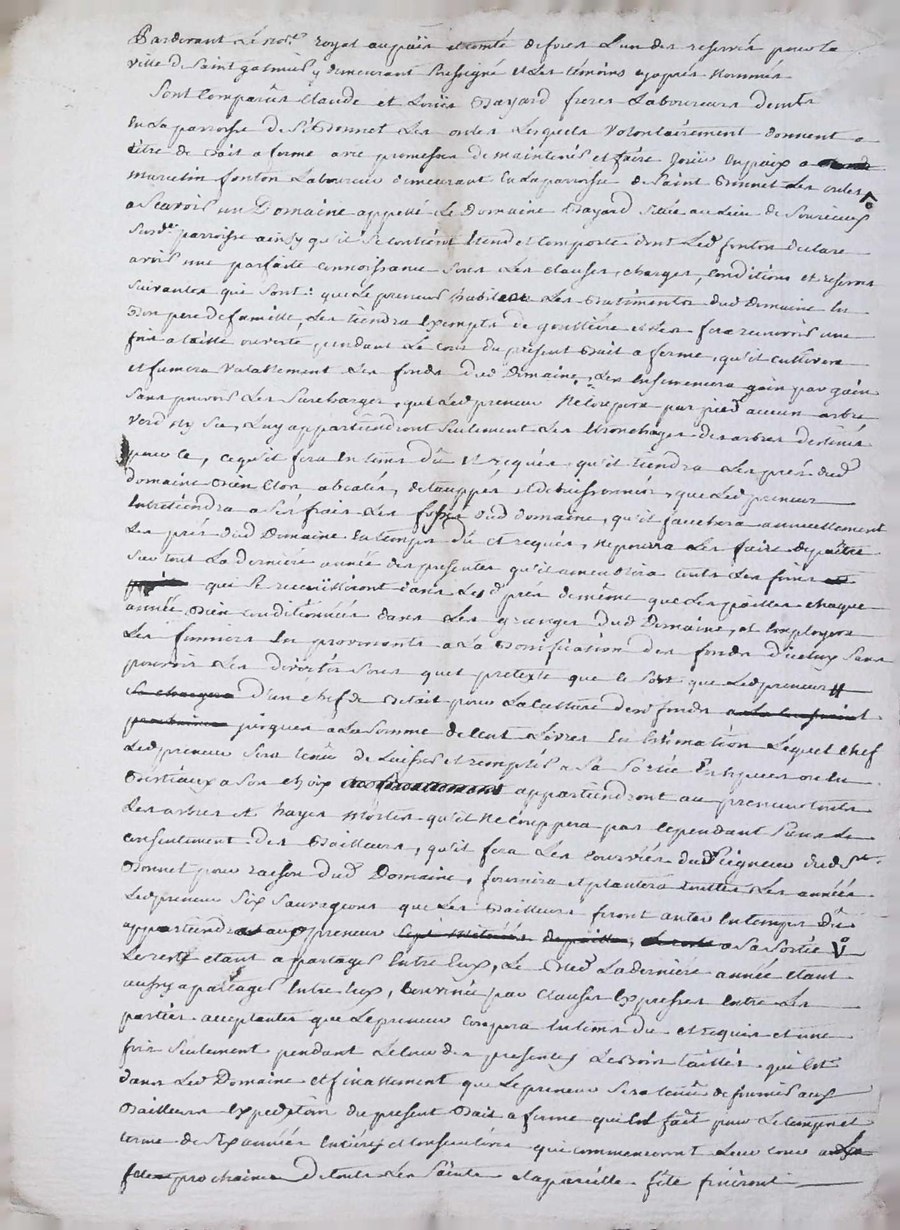 Pardevant Le no.re royal au païs et comté deforez L'un des reservés pour la
ville de Saint galmier y demeurant Soussigné et Les témoins cy après Nommés
Sont Comparûs Claude et Loüis Bayard freres Laboureurs demts
En La parroisse de St Bonnet Les oules Lesquels Volontairement donnent a
titre de Bail a ferme avec promesse de maintenir et faire Joüir en paix a
marcelin fonton Laboureur demeurant En La parroisse de Saint Bonnet Les oules
a Scavoir un Domaine appellé Le Domaine Bayard Situé au Lieu de
Sus de parroisse ainsy qu'il Se contient Etend et Comporte dont Led fonton declare
avoir une parfaite connoissance Sous Les clauses, charges, conditions et reserves
Suivantes qui Sont: que Le preneur habitera Les Batiments dud Domaine En
Bon pere de famille, Les tiendra Exempts de gouttiere et Les fera recouvrir une
fois a taille ouverte, pendant Le cours du présent Bail a ferme, qu'il cultivera
et fumera Valablement Les fonds dud Domaine, Les Ensemencera gain par gain
Sans pouvoir Les Surcharger, que Led preneur Ne Coupera par pied aucun arbre
Verd Ny Sec, Luy appartiendront Seulement Les Ebronchages des arbres destinés
pour ce, ce qu'il fera En tems dû et requis, qu'il tiendra Les prés dud
domaine Bien Clos, detauppés et debuissonnés, que Led preneur
Entretiendra a Ses frais Les fossés dud domaine, qu'il fauchera annuellement
Les prés dud Domaine En temps dû et requis, Ne pourra Les faire depaître
Sur tout La derniere année des presentes qu'il ameublira touts Les foins
qui Se recuillîront dans Les d prés de même que Les pailles chaque
année Bien conditionnées dans Les granges dud Domaine, et Employera
Les fumiers En provenants a La Bonification des fonds d'iceluy Sans
pouvoir Les divertir Sous quel pretexte que ce Soit que Led preneur
d'un chef de Betail pour La Culture desd fonds
jusques a La Somme de Cent Livres En Estimation Lequel chef
Led preneur Sera tenû de Laisser et remplir a Sa Sortie En Especes ou En
Bestiaux a Son choix appartiendront au preneur touts
Les arbres et hayes mortes qu'il Ne Couppera pas Cependant Sans Le
consentement des Bailleurs, qu'il fera Les Courvées du Seigneur dud St
Bonnet pour raison dud Domaine, fournira et plantera touttes Les années
Led preneur Six Sauvageons que Les Bailleurs feront anter En temps dû
appartiendra au preneur a Sa Sortie
Le reste etant a partager Entre Eux, Le Bled La derniere année etant
aussy a partager Entre Eux, Convenu par clauses Expresses Entre Les
parties acceptantes que Le preneur Coupera En tems du et requis et une
fois Seulement pendant Le Cours des presentes Les Bois taillés qui Est
dans Led Domaine et finallement que Le preneur Sera tenû de fournir aux
Bailleurs Expedition du present Bail a ferme qui Est fait pour Le temps et
terme de Six années Entieres et Consecutives qui commenceront Leur Cours a La
fête prochaine De touts Les Saints et a pareille fête finiront